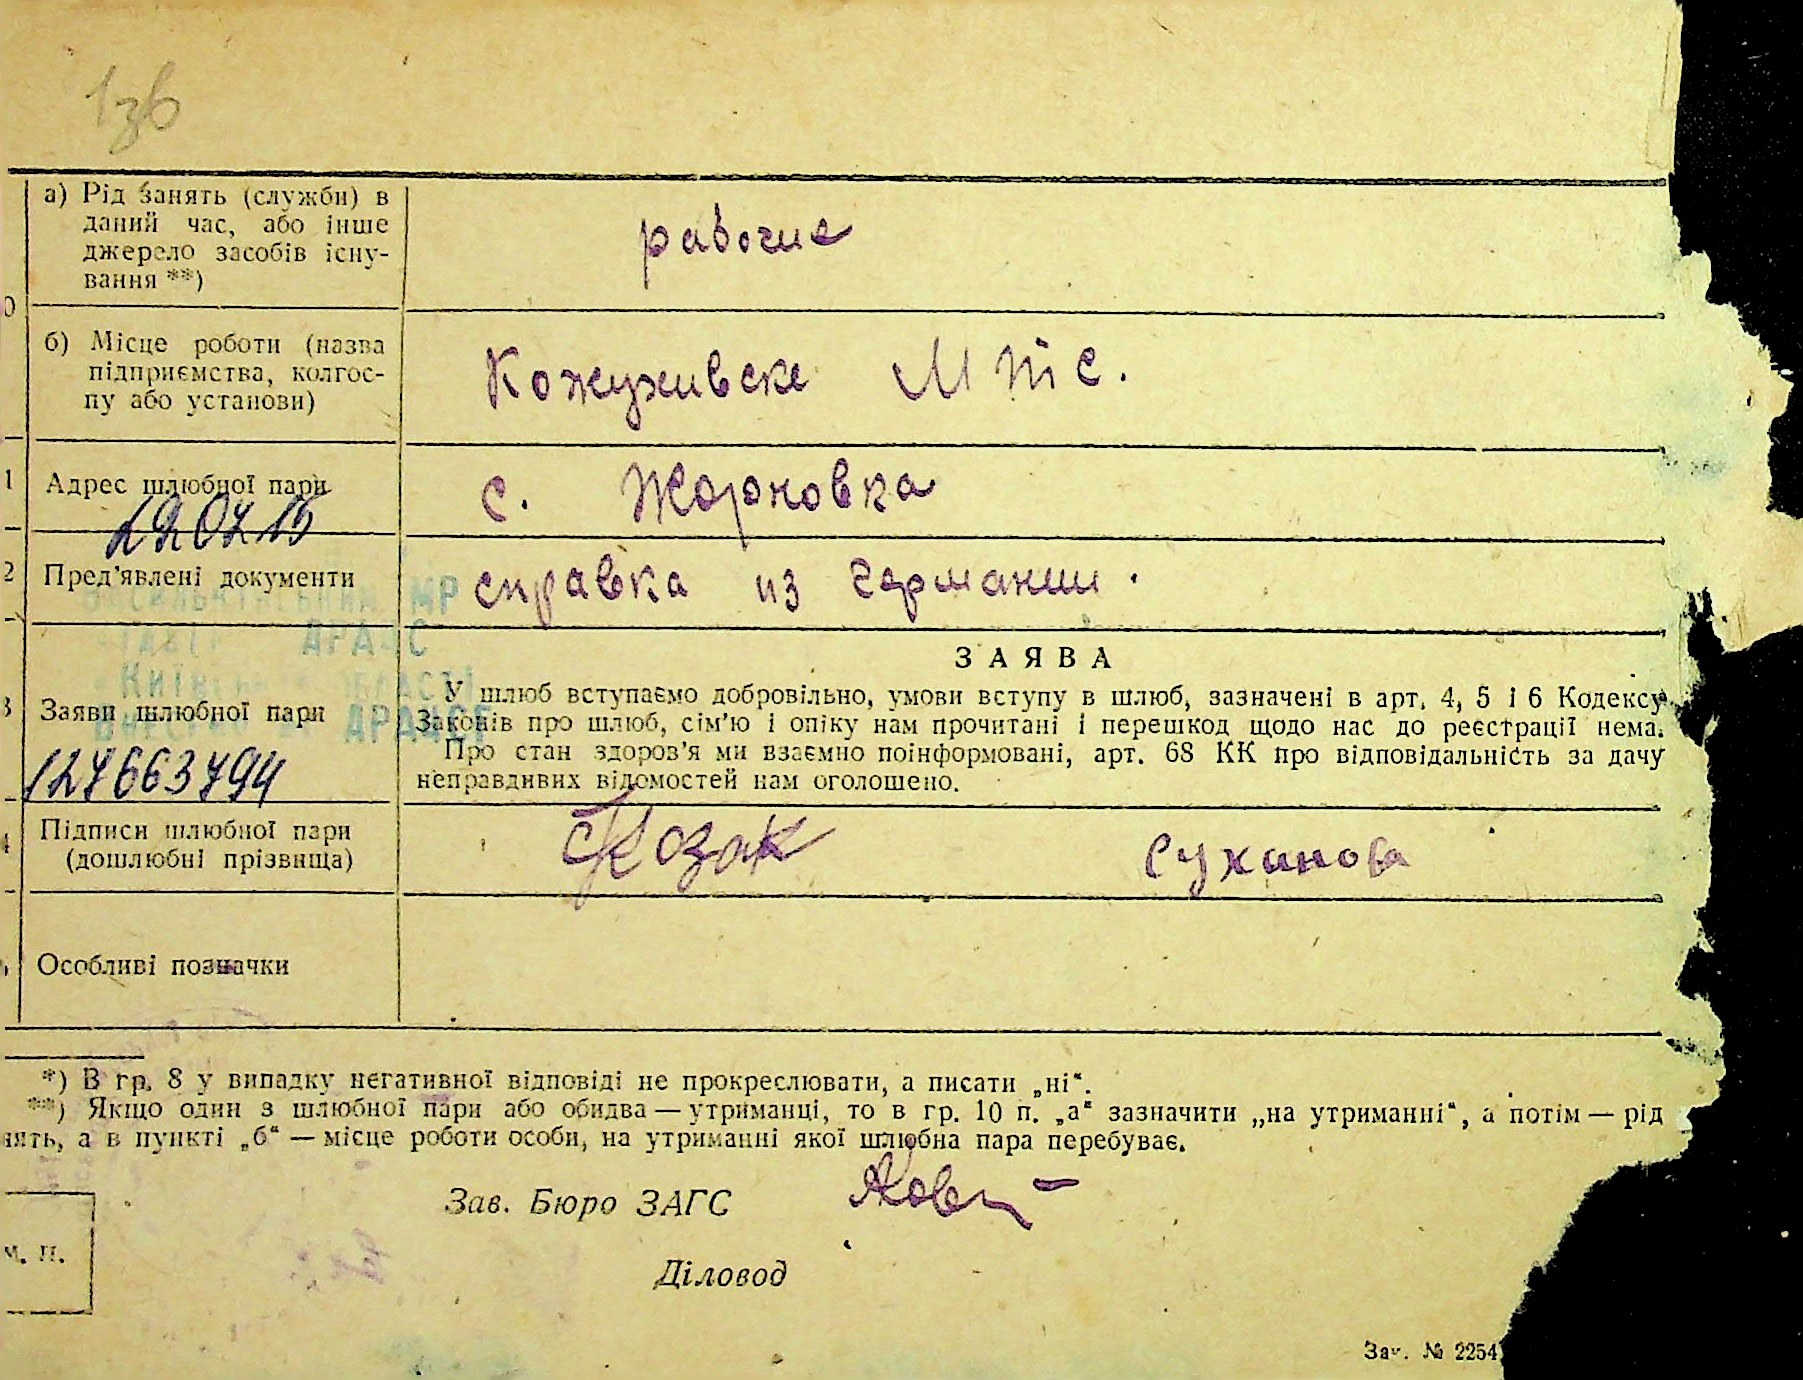 136
а) Рід занять (служби) в
даний час, або інше
джерело засобів існу-
вання **)
рабочие
0
б) Місце роботи (назва
підприємства, колгос-
пу або установи)
Кожуховске М т с.
1
Адрес шлюбної пари
с. Жорновка
290715
2
Пред'явлені документи
справка из германии.
МР
ДРАЦС
ЗАЯВА
3
Заяви шлюбної пари
У шлюб вступаємо добровільно, умови вступу в шлюб, зазначені в арт. 4, 5 і 6 Кодексу
Законів про шлюб, сім'ю і опіку нам прочитані і перешкод щодо нас до реєстрації нема.
Про стан здоров'я ми взаємно поінформовані, арт. 68 КК про відповідальність за дачу
неправдивих відомостей нам оголошено.
127663794
Підписи шлюбної пари
(дошлюбні прізвища)
Козак Суханова
Особливі позначки
*) В гр. 8 у випадку негативної відповіді не прокреслювати, а писати „ні“.
**) Якщо один з шлюбної пари або обидва — утриманці, то в гр. 10 п. „а“ зазначити „на утриманні“, а потім — рід
нять, а в пункті „б“ — місце роботи особи, на утриманні якої шлюбна пара перебуває.
Зав. Бюро ЗАГС
м. п.
Діловод
Зам. № 2254